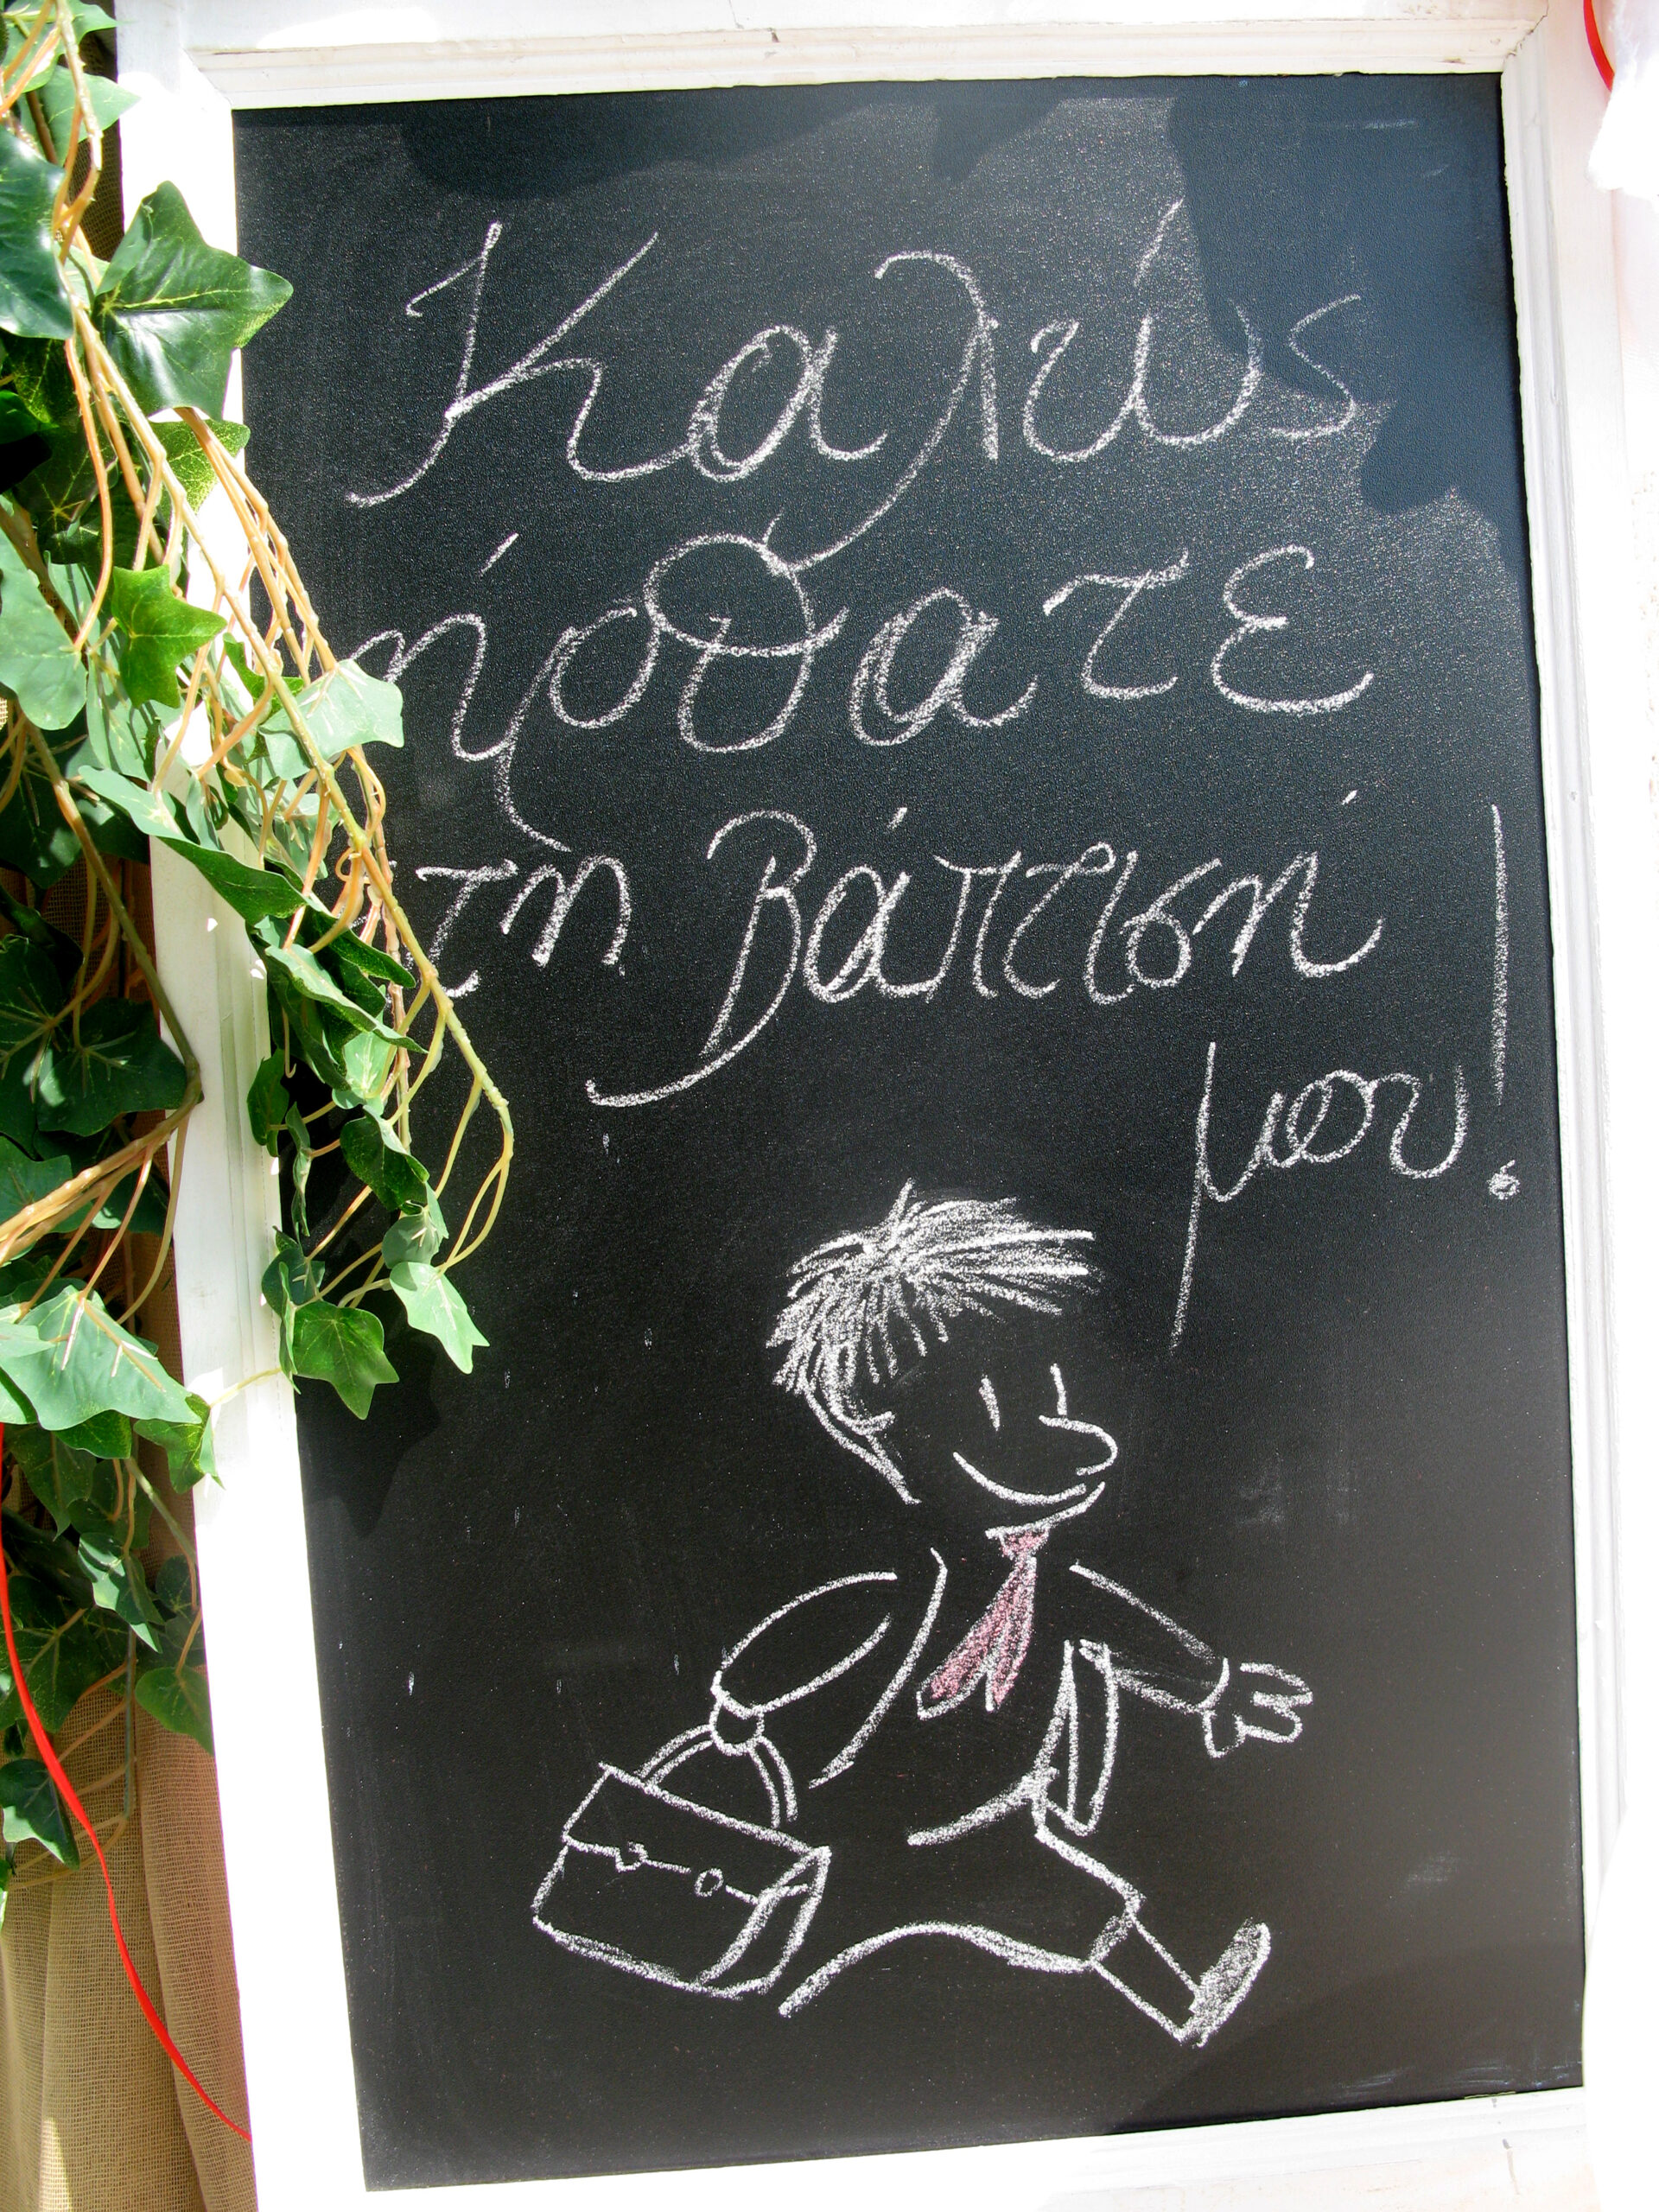 Καλώς
ήρθατε
στη Βάπτισή
μου!